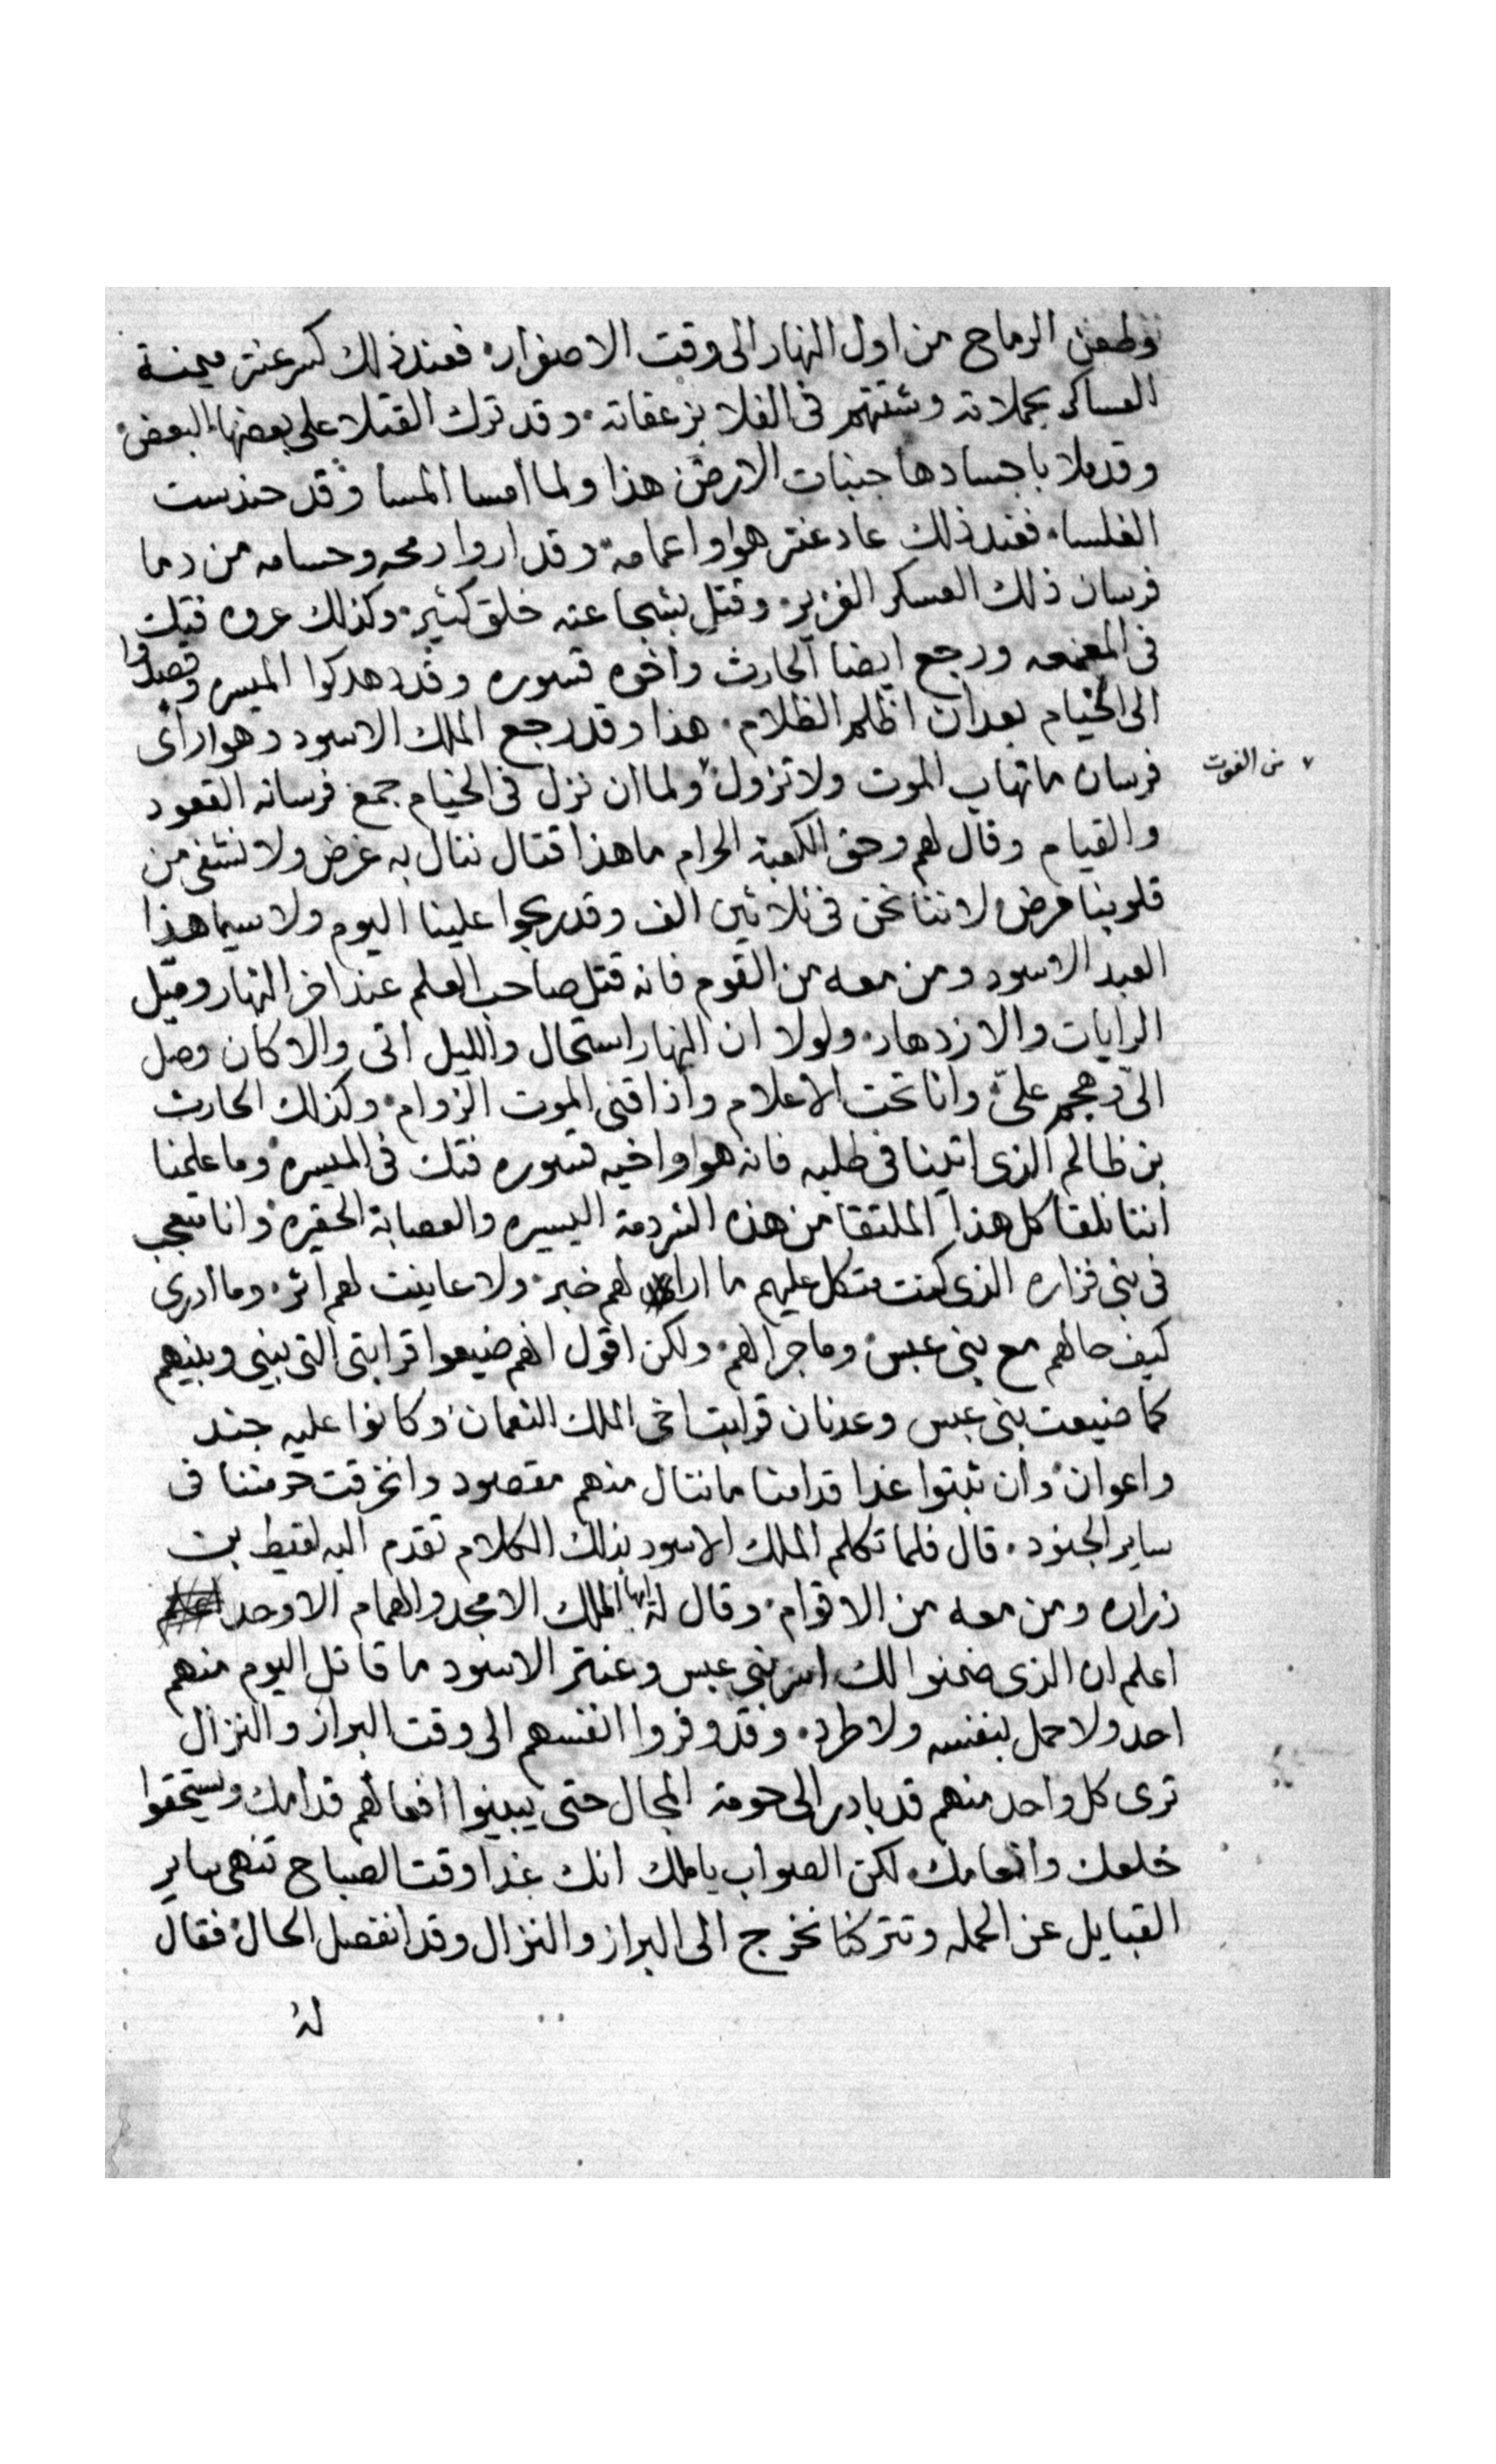 وطعن الرماح من اول النهار الى وقت الاصفرار، فعند ذلك كسر عنتر ميمنة
العساكر بحملاته وشتتهم فى الفلا بزعقاته، وقد ترك القتلا على بعضها البعض،
وقد ملا باجسادها جنبات الارض، هذا ولما امسا المسا وقد حندست
الغلسا، فعند ذلك عاد عنتر هو واعمامه، وقد اروا رمحه وحسامه من دما
فرسان ذلك العسكر الغزير، وقتل بشجاعته خلق كثير، وكذلك عروه فتك
فى المعمعه ورجع ايضا الحارث واخوه قسوره وقد هدكوا الميسره وقصدوا
الى الخيام بعد ان اظلم الظلام، هذا وقد رجع الملك الاسود وهو اراى
فرسان ما تهاب الموت ولا تزول، ولما ان نزل فى الخيام جمع فرسانه القعود
من الفوت
والقيام وقال لهم وحق الكعبة الحرام ما هذا قتال ننال به غرض ولا نشفى من
قلوبنا مرض لاننا نحن فى ثلاثين الف وقد ربحوا علينا اليوم ولا سيما هذا
العبد الاسود ومن معه من القوم فانه قتل صاحب العلم عند اخر النهار وميل
الرايات والازدهار، ولولا ان النهار استحال والليل اتى والا كان وصل
الىّ وهجم علىّ وانا تحت الاعلام واذاقنى الموت الزوام، وكذلك الحارث
بن ظالم الذى اتينا فى طلبه فانه هو واخيه قسوره فتك فى الميسره وما علمنا
اننا نلقا كل هذا الملتقا من هذه الشردمة اليسيره والعصابة الحقيره، وانا متعجب
فى بنى فزاره الذى كنت متكل عليهم ما اراى لهم خبر، ولا عاينت لهم اثر، وما ادرى
كيف حالهم مع بنى عبس، وما جرا لهم، ولكن اقول انهم ضيعوا قرابتى التى بينى وبينهم
كما ضيعت بنى عبس وعدنان قرابت اخى الملك النعمان، وكانوا عليه جند
واعوان، وان ثبتوا غدا قدامنا ما ننال منهم مقصود وانخرقت حرمتنا فى
ساير الجنود، قال فلما تكلم الملك الاسود بذلك الكلام تقدم اليه لقيط بن
زراره ومن معه من الاقوام، وقال له ايها الملك الامجد والهمام الاوحد
اعلم ان الذى ضمنوا لك اسر بنى عبس وعنتر الاسود ما قاتل اليوم منهم
احد ولا حمل بنفسه ولا طرد، وقد وفروا انفسهم الى وقت البراز والنزال
ترى كل واحد منهم قد بادر الى حومة المجال حتى يبينوا افعالهم قدامك ويستحقوا
خلعك وانعامك، لكن الصواب يا ملك انك غدا وقت الصباح تنهى ساير
القبايل عن الحمله وتتركنا نخرج الى البراز والنزال وقد انفصل الحال، فقال
له